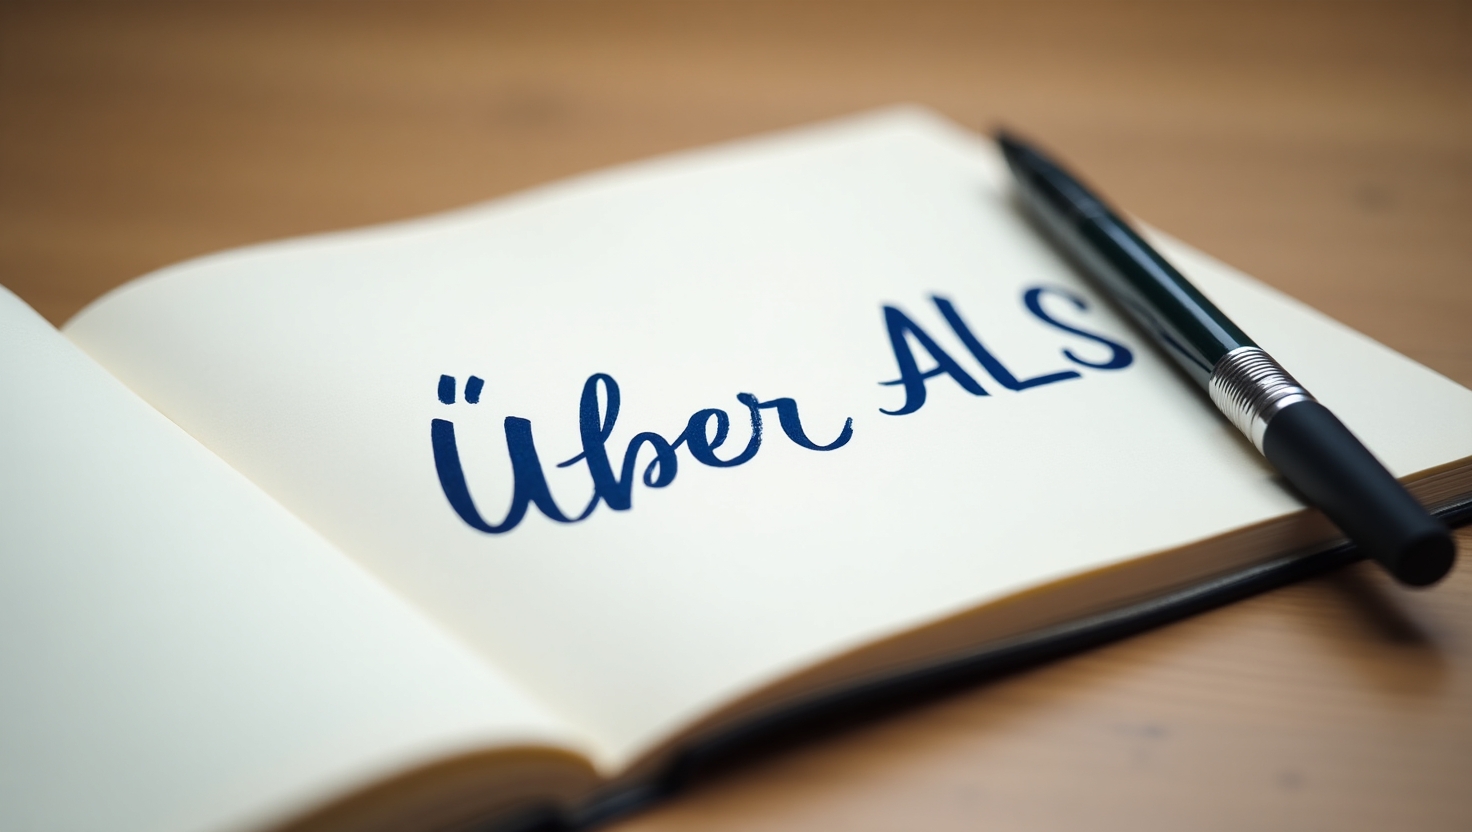 Über ALS